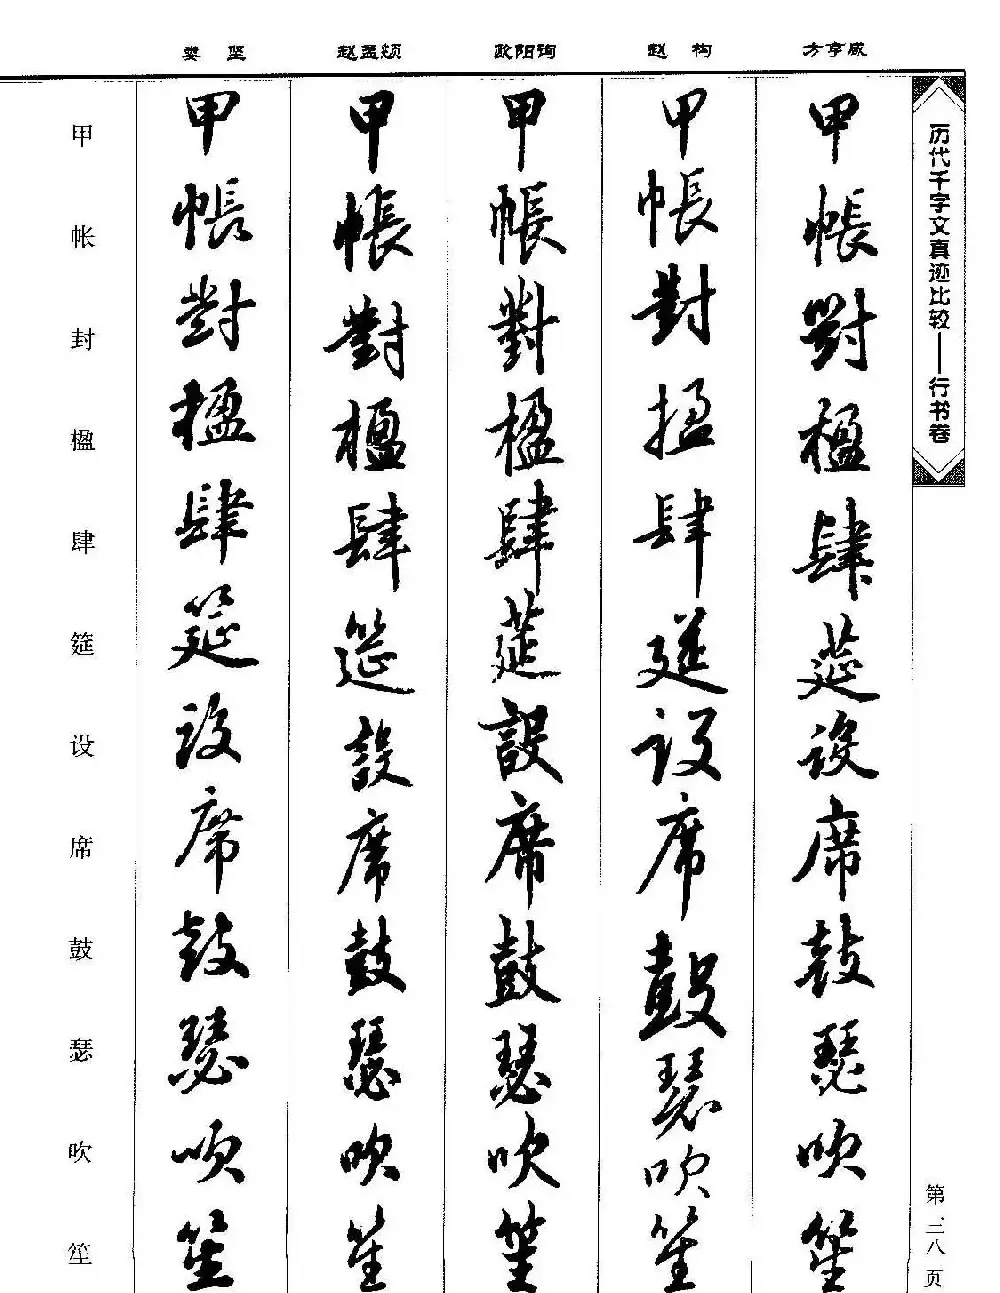 娄坚 赵孟頫 欧阳询 赵构 方亨咸
历代千字文真迹比较——行书卷
甲帳對楹肆筵設席鼓瑟吹笙
甲帳對楹肆筵設席鼓瑟吹笙
甲帳對楹肆筵設席鼓瑟吹笙
甲帳對楹肆筵設席鼓瑟吹笙
甲帳對楹肆筵設席鼓瑟吹笙
甲帐封楹肆筵设席鼓瑟吹笙
第三八页